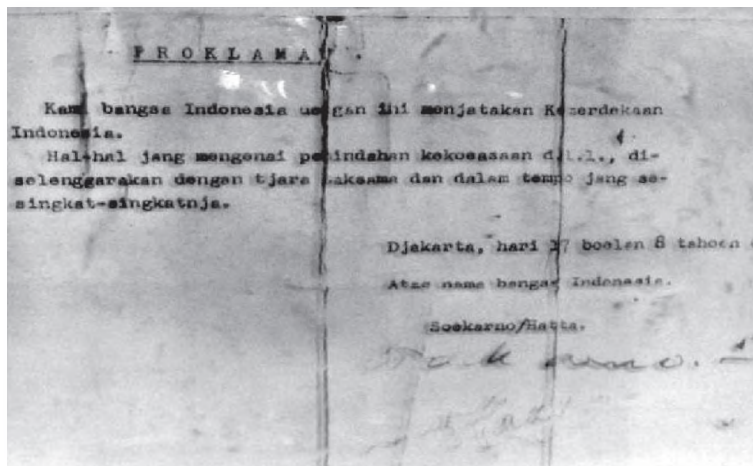 P R O K L A M A
Kami bangsa Indonesia dengan ini menjatakan Kemerdekaan
Indonesia.
Hal-hal jang mengenai pemindahan kekoeasaan d.l.l., di-
selenggarakan dengan tjara saksama dan dalam tempo jang se-
singkat-singkatnja.
Djakarta, hari 17 boelan 8 tahoen
Atas nama bangsa Indonesia.
Soekarno/Hatta.